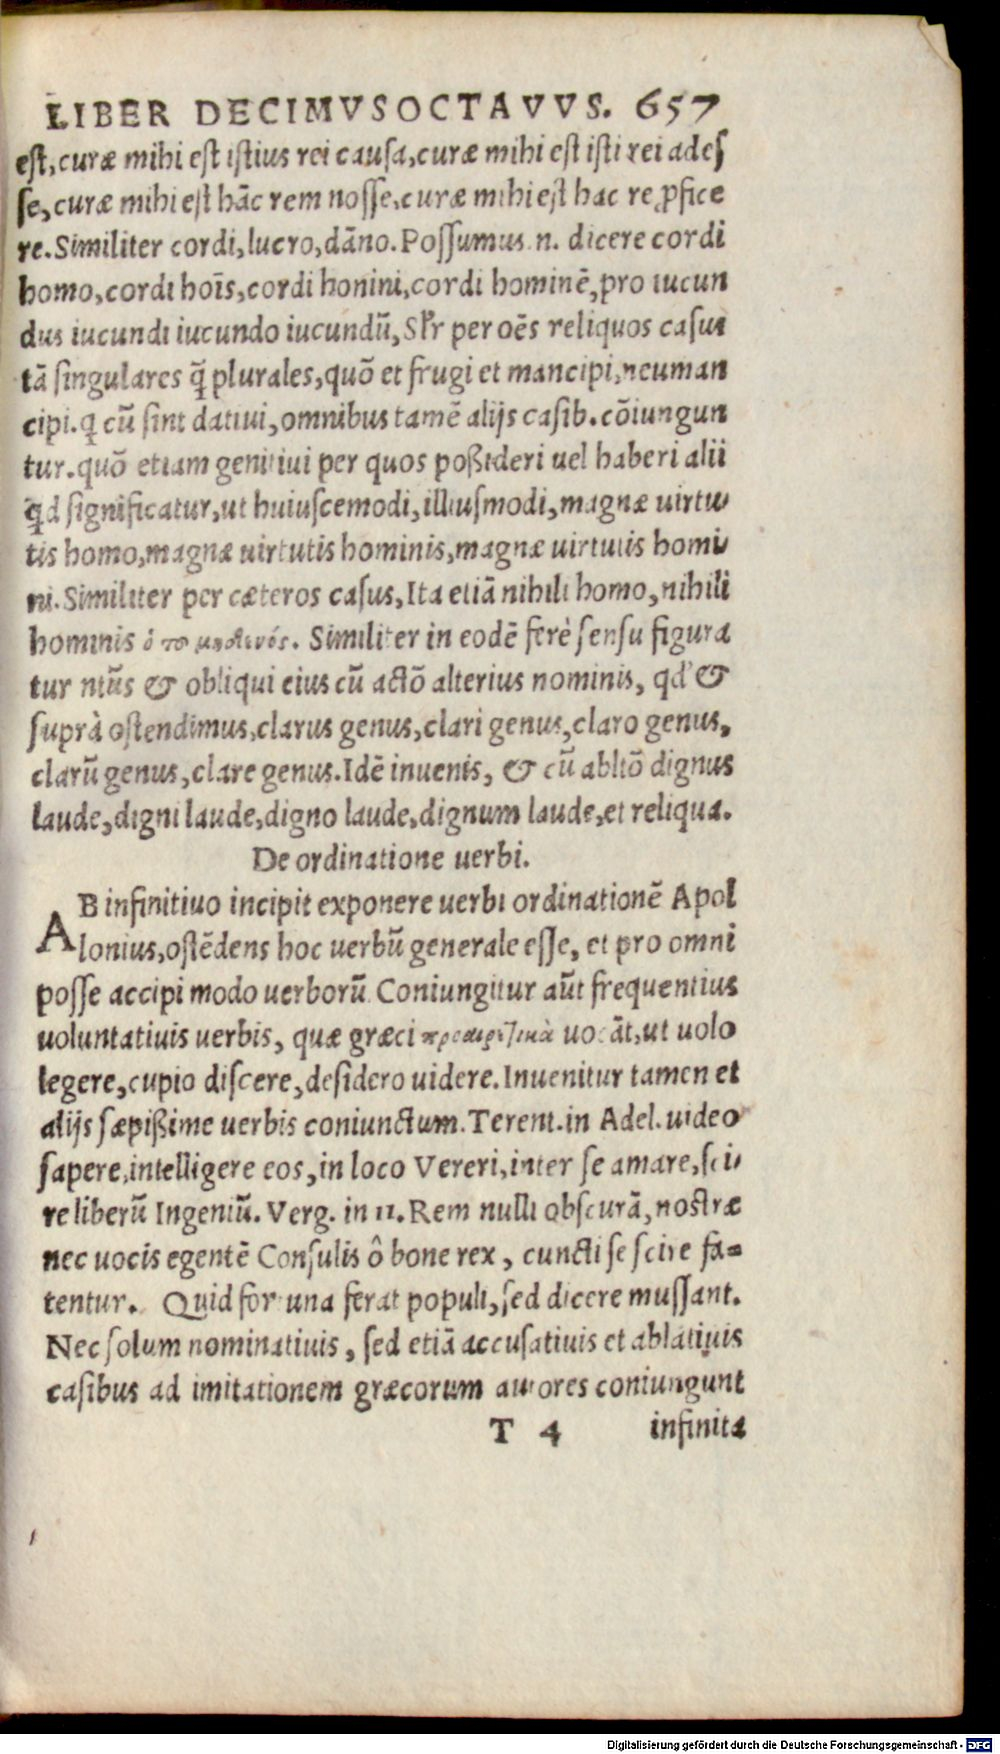 LIBER DECIMVSOCTAVVS. 657
est, curæ mihi est istius rei causa, curæ mihi est isti rei ades
se, curæ mihi est hāc rem nosse, curæ mihi est hac re ꝓfice
re. Similiter cordi, lucro, dāno. Possumus .n. dicere cordi
homo, cordi hoīs, cordi honini, cordi hominē, pro iucun
dus iucundi iucundo iucundū, Sĺr per oēs reliquos casus
tā singulares q̃ plurales, quō et frugi et mancipi, neuman
cipi. q cū sint datiui, omnibus tamē alijs casib. cōiungun
tur. quō etiam genitiui per quos poßideri uel haberi alii
q̃d significatur, ut huiuscemodi, illiusmodi, magnæ uirtu
tis homo, magnæ uirtutis hominis, magnæ uirtutis homi
ni. Similiter per cæteros casus, Ita etiā nihili homo, nihili
hominis ὁ το μηδενός. Similiter in eodē ferè sensu figura
tur ntūs & obliqui eius cū actō alterius nominis, qd' &
suprà ostendimus, clarus genus, clari genus, claro genus,
clarū genus, clare genus. Idē inuenis, & cū abltō dignus
laude, digni laude, digno laude, dignum laude, et reliqua.
De ordinatione uerbi.
AB infinitiuo incipit exponere uerbi ordinationē Apol
lonius, ostēdens hoc uerbū generale esse, et pro omni
posse accipi modo uerborū. Coniungitur aūt frequentius
uoluntatiuis uerbis, quæ græci προαιρετικὰ uocāt, ut uolo
legere, cupio discere, desidero uidere. Inuenitur tamen et
alijs sæpißime uerbis coniunctum. Terent. in Adel. uideo
sapere, intelligere eos, in loco Vereri, inter se amare, sci
re liberū Ingeniū. Verg. in 11. Rem nulli obscurā, nostræ
nec uocis egentē Consulis ô bone rex, cuncti se scire fa=
tentur. Quid fortuna ferat populi, sed dicere mussant.
Nec solum nominatiuis, sed etiā accusatiuis et ablatiuis
casibus ad imitationem græcorum autores coniungunt
T 4 infinita
Digitalisierung gefördert durch die Deutsche Forschungsgemeinschaft - DFG